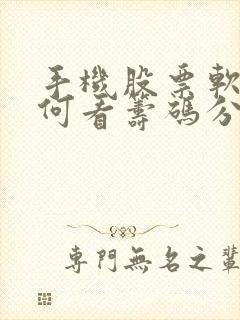 手機股票軟
何看籌碼分
專門無名之輩